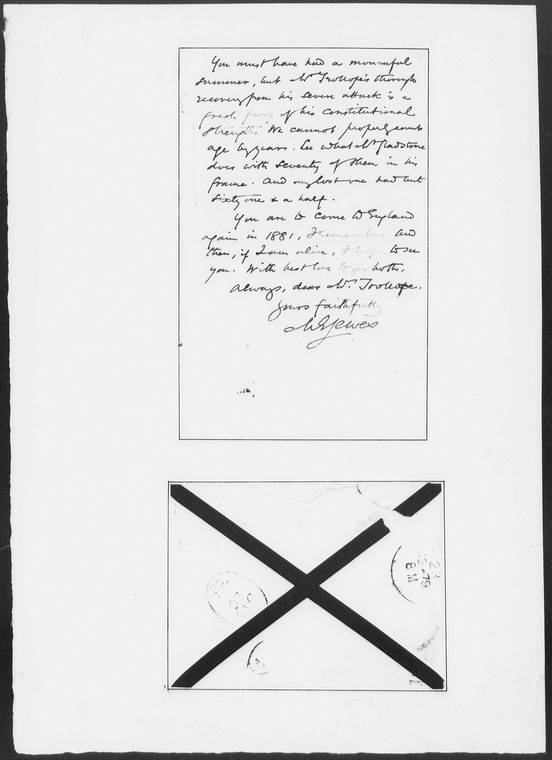 You must have had a mournful
summer, but Mr. Trollope's thorough
recovery from his severe attack is a
fresh proof of his constitutional
strength. We cannot properly count
age by years. See what Mr. Gladstone
does with seventy of them in his
frame. And my lost one had but
sixty one & a half.
You are to come to England
again in 1881, I remember. And
then, if I am alive, I hope to see
you. With best love to you both,
Always, dear Mrs. Trollope,
Yours faithfully
M E Lewes
79
8 M